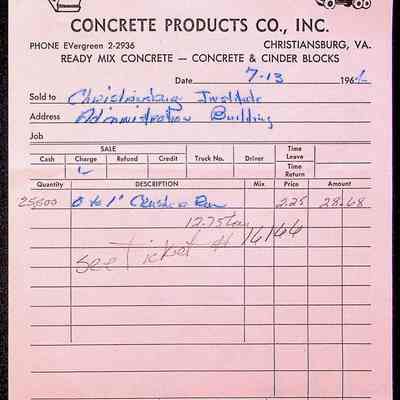 CONCRETE PRODUCTS CO., INC.
PHONE EVergreen 2-2936 CHRISTIANSBURG, VA.
READY MIX CONCRETE — CONCRETE & CINDER BLOCKS
Date 7-13 1964
Sold to Christiansburg Institute
Address Administration Building
Job
SALE Time Leave
Cash Charge Refund Credit Truck No. Driver Time Return
Quantity DESCRIPTION Mix Price Amount
25,500 0 to 1" Crusher Run 2.25 28.68
12.75 ton
See Ticket # 16166